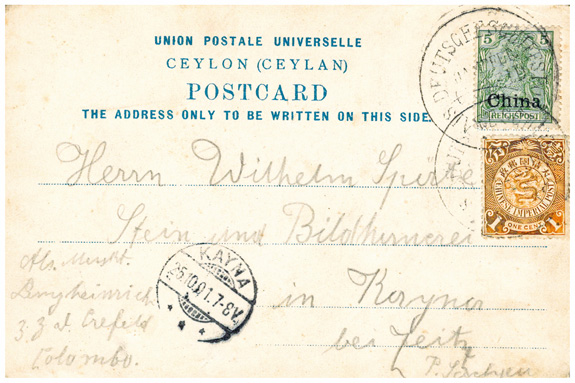 UNION POSTALE UNIVERSELLE
CEYLON (CEYLAN)
POSTCARD
THE ADDRESS ONLY TO BE WRITTEN ON THIS SIDE.
5 5
China
REICHSPOST
CHINESE IMPERIAL POST
1 ONE CENT 1
Herrn Wilhelm
Stein und Bildhauerei
in Kayna
bei Zeitz
P. Sachsen
KAYNA
25.10.01.7-8V.
Abs. Muskt.
Burgheinrich
z. Z. d. Crefeld
Colombo.